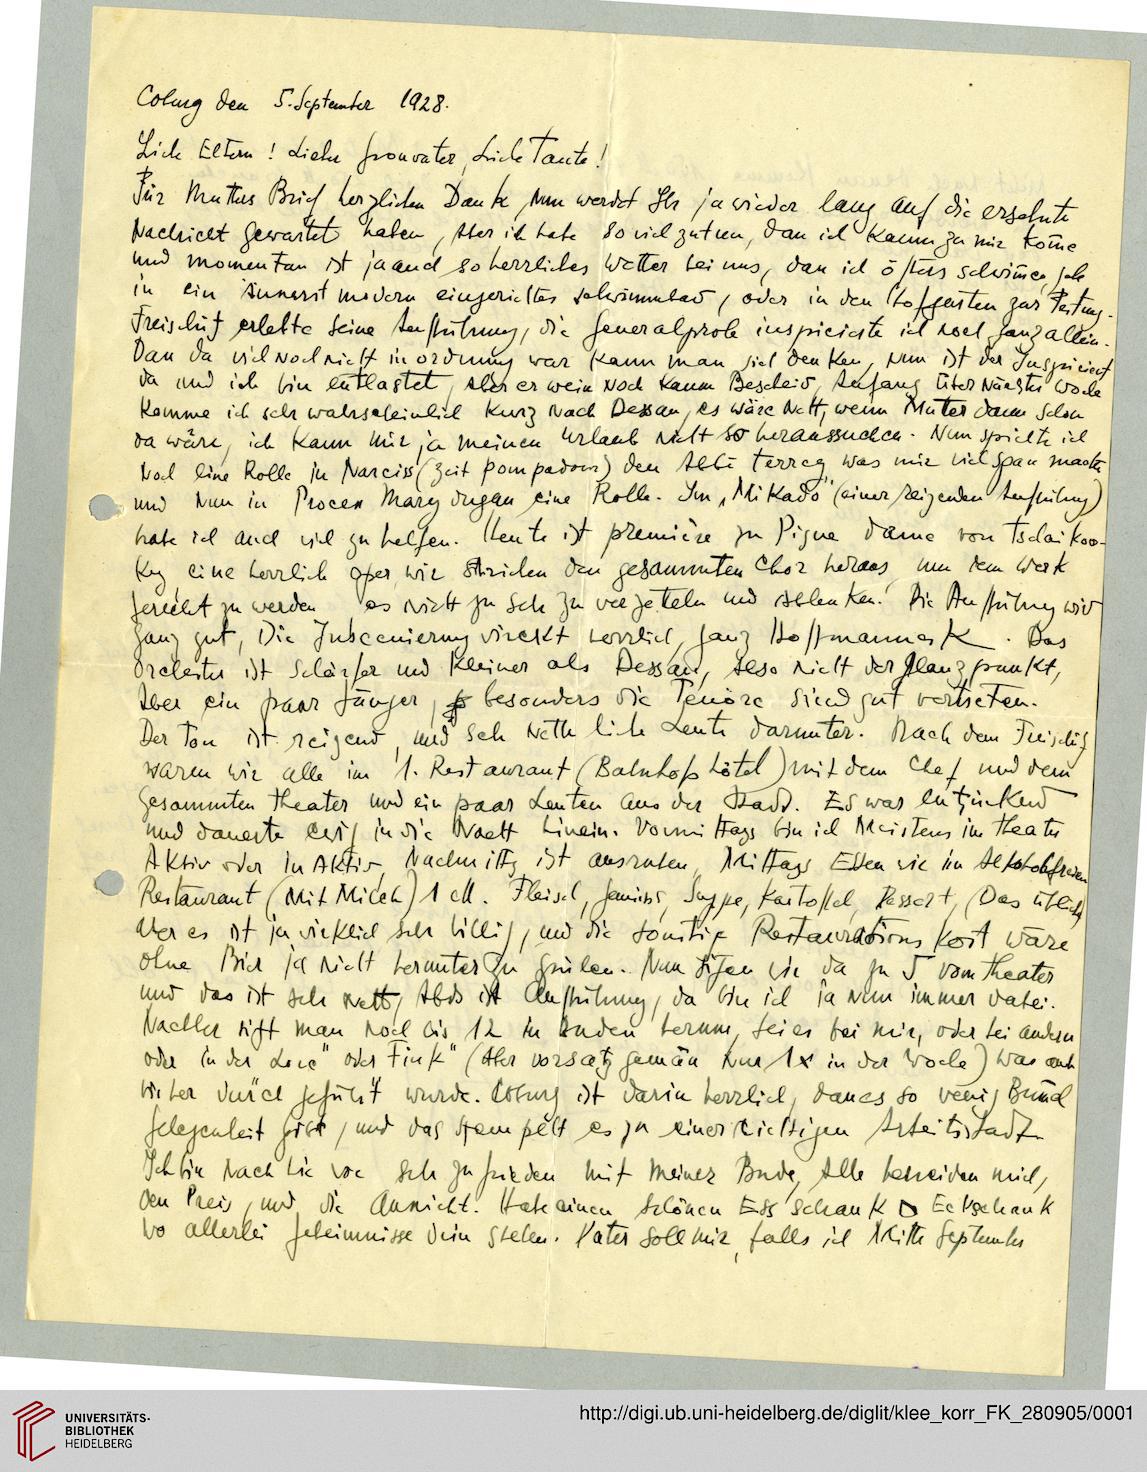 Coburg den 5. September 1928.
Liebe Eltern! Lieber Grossvater, Liebe Tante!
Für Mutters Brief herzlichen Dank, Nun werdet Ihr ja wieder lang auf die ersehnte
Nachricht gewartet haben, Aber ich habe so viel zu tuen, dass ich kaum zu mir kom̄e
und momentan ist ja auch so herrliches Wetter bei uns, dass ich öfters schwim̄en gehe
in ein äusserst modern eingerichtes schwimmbad, oder in den Hofgarten zur Festung.
Freischütz erlebte seine Aufführung, die Generalprobe inspicierte ich noch ganz allein.
Dass da viel noch nicht in ordnung war kann man sich denken, Nun ist der Inspicient
da und ich bin entlastet, Aber er weiss noch kaum Bescheid, Anfang über nächster Woche
komme ich sehr wahrscheinlich kurz nach Dessau, es wäre nett, wenn Mutter dann schon
da wäre, ich kann mir ja meinen Urlaub nicht so heraussuchen. Nun spielte ich
noch eine Rolle in Narciss (zeit pompadour) den Abbé Terray was mir viel spass machte
und nun in Process Mary Dugan eine Rolle. Im „Mikado" (einer reizenden Aufführung)
habe ich auch viel zu helfen. Heute ist première zu Pique dame von Tschaikow-
sky, eine herrliche oper, wir strichen den gesammten Chor heraus, um dem Werk
gerecht zu werden es nicht zu sehr zu verzetteln und ablenken. Die Aufführung wird
ganz gut, Die Inscenierung direkt herrlich, ganz Hoffmannesk. Das
Orchester ist schärfer und kleiner als Dessau, Also nicht der Glanzpunkt,
Aber ein paar Sänger, besonders die Tenöre sind gut vertreten.
Der Ton ist reizend, und sehr nette liebe Leute darunter. Nach dem Freischütz
waren wir alle im 1. Restaurant (Bahnhofshôtel) mit dem Chef und dem
gesammten Theater und ein paar Leuten aus der Stadt. Es war entzückend
und dauerte ewig in die Nacht hinein. Vormittags bin ich Meistens im Theater
Aktiv oder InAktiv, Nachmittg ist ausruhen, Mittags Essen wir im Alkoholfreien
Restaurant (Mit Milch) 1 M. Fleisch, Gemüse, Suppe, Kartoffel, Dessert, (Das übliche)
Aber es ist ja wirklich sehr billig, und die sonstige Restaurations kost wäre
ohne Bier ja nicht herunter zu spülen. Nun sitzen wir da zu 5 vom Theater
und das ist sehr nett, Abds ist Aufführung, da bin ich ja nun immer dabei.
Nachher sitzt man noch bis 12 in Buden herum, sei es bei mir, oder bei andern
oder in der „Loge" oder „Fink" (Aber vorsatzgemäss nur 1x in der Woche) was auch
bisher durch geführt wurde. Coburg ist darin herrlich, dass es so wenig Bum̄el
gelegenheit gibt, und das stempelt es zu einer richtigen Arbeitsstadt.
Ich bin nach wie vor sehr zu frieden mit meiner Bude, Alle beneiden mich,
den Preis, und die Aussicht. Habe einen schönen Ess schrank Eckschrank
wo allerlei Geheimnisse drin stehen. Vater soll mir, falls ich Mitte September
UNIVERSITÄTS-
BIBLIOTHEK
HEIDELBERG
http://digi.ub.uni-heidelberg.de/diglit/klee_korr_FK_280905/0001